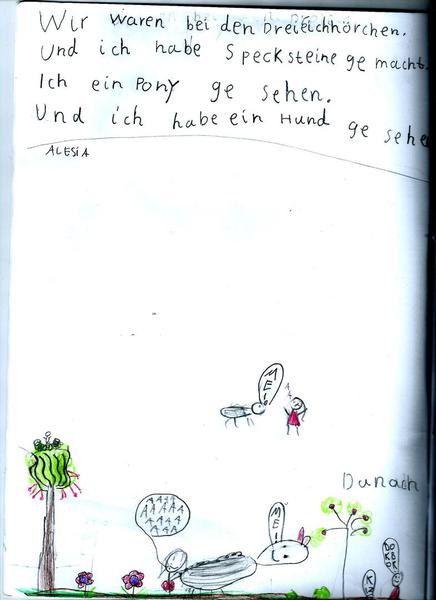 Wir waren bei den Dreieichhörchen.
Und ich habe Specksteine ge macht.
Ich ein Pony ge sehen.
Und ich habe ein Hund ge sehe
ALESiA
MEI
A
Danach
AAAA
AAAAA
AAAA
AAA
MEI